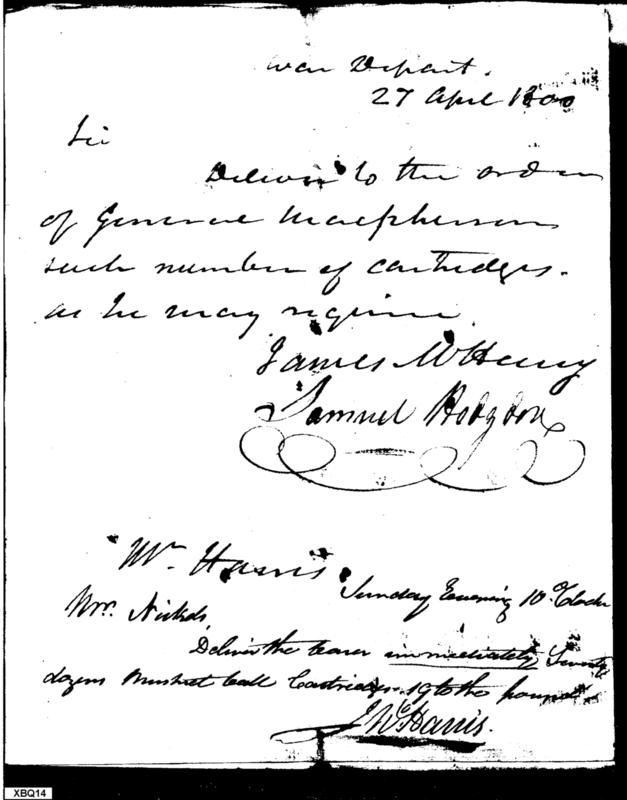 War Depart.
27 April 1800
Sir
Deliver to the order
of General Macpherson
such number of cartridges.
as he may require
James McHenry
Samuel Hodgdon
Mr Harris
Sunday Evening 10 oClock
Mr. Nichols,
Deliver the bearer immediately Twenty
dozens Musket ball Cartridges 19 to the pound
Harris.
XBQ14